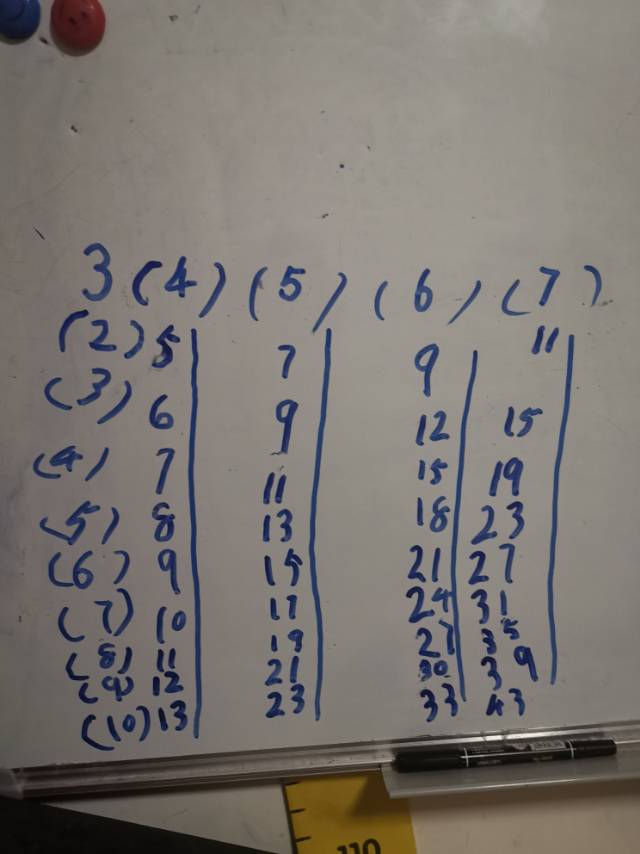 3 (4) (5) (6) (7)
(2) 5 7 9 11
(3) 6 9 12 15
(4) 7 11 15 19
(5) 8 13 18 23
(6) 9 15 21 27
(7) 10 17 24 31
(8) 11 19 27 35
(9) 12 21 30 39
(10) 13 23 33 43
110